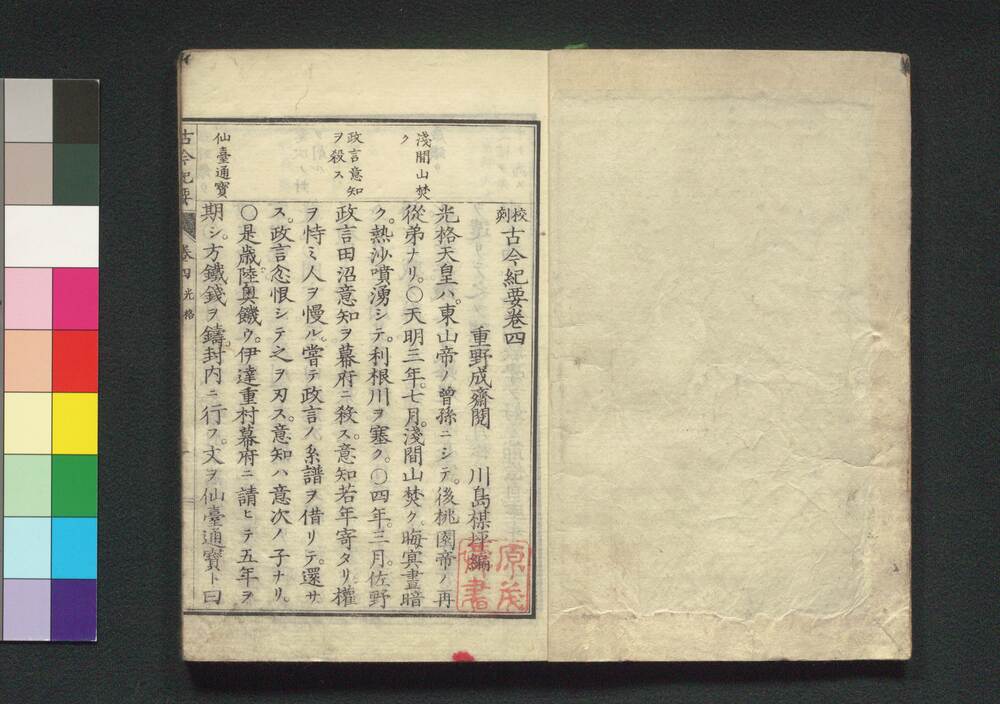 校刻 古今紀要卷四
重野成齋閱 川島楳坪編
光格天皇ハ。東山帝ノ曾孫ニシテ。後桃園帝ノ再
從弟ナリ。〇天明三年。七月。淺間山焚ク。晦冥晝暗
ク。熱沙噴湧シテ。利根川ヲ塞ク。〇四年。三月。佐野
政言田沼意知ヲ幕府ニ殺ス。意知若年寄タリ。權
ヲ恃ミ人ヲ慢ル。嘗テ政言ノ系譜ヲ借リテ。還サ
ス。政言忿恨シテ之ヲ刃ス。意知ハ意次ノ子ナリ。
〇是歲陸奧饑ウ。伊達重村幕府ニ請ヒテ五年ヲ
期シ。方鐵錢ヲ鑄。封内ニ行フ。文ヲ仙臺通寶ト曰
淺間山焚
ク
政言意知
ヲ殺ス
仙臺通寶
古今紀要 卷四 光格